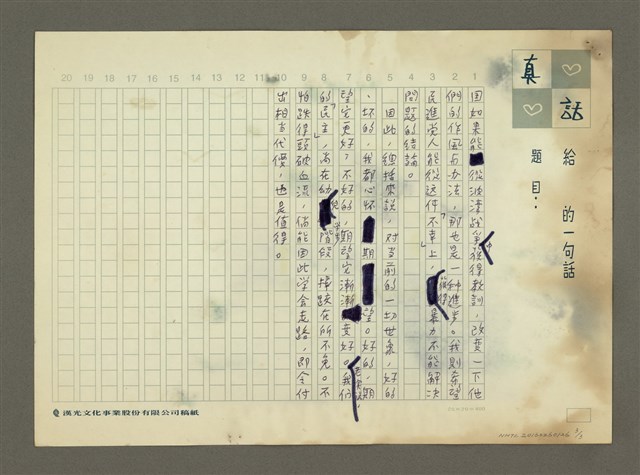 真話
給　的一句話
題目：
20 19 18 17 16 15 14 13 12 11 10 9 8 7 6 5 4 3 2 1
因如果能從波湾战争中獲得教訓，改变一下他
們的作風与办法，那也是一种進步。我則希望
民進党人能從这件「不幸」上，獲得暴力不能解决
問題的结論。
因此，總括來說，对当前的一切世象，好的
、坏的，我都心怀期望。好的，期
望它更好？不好的，期望它漸漸变好。我們
的「民主」，尚在幼兒学步階段，摔跤在所不免。不
怕跌得頭破血流，倘能因此学会走路，即令付
出相当代價，也是值得。
漢光文化事業股份有限公司稿紙